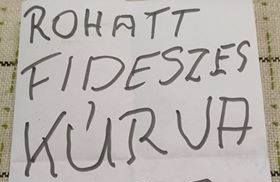 ROHATT
FIDESZES
KÚRVA